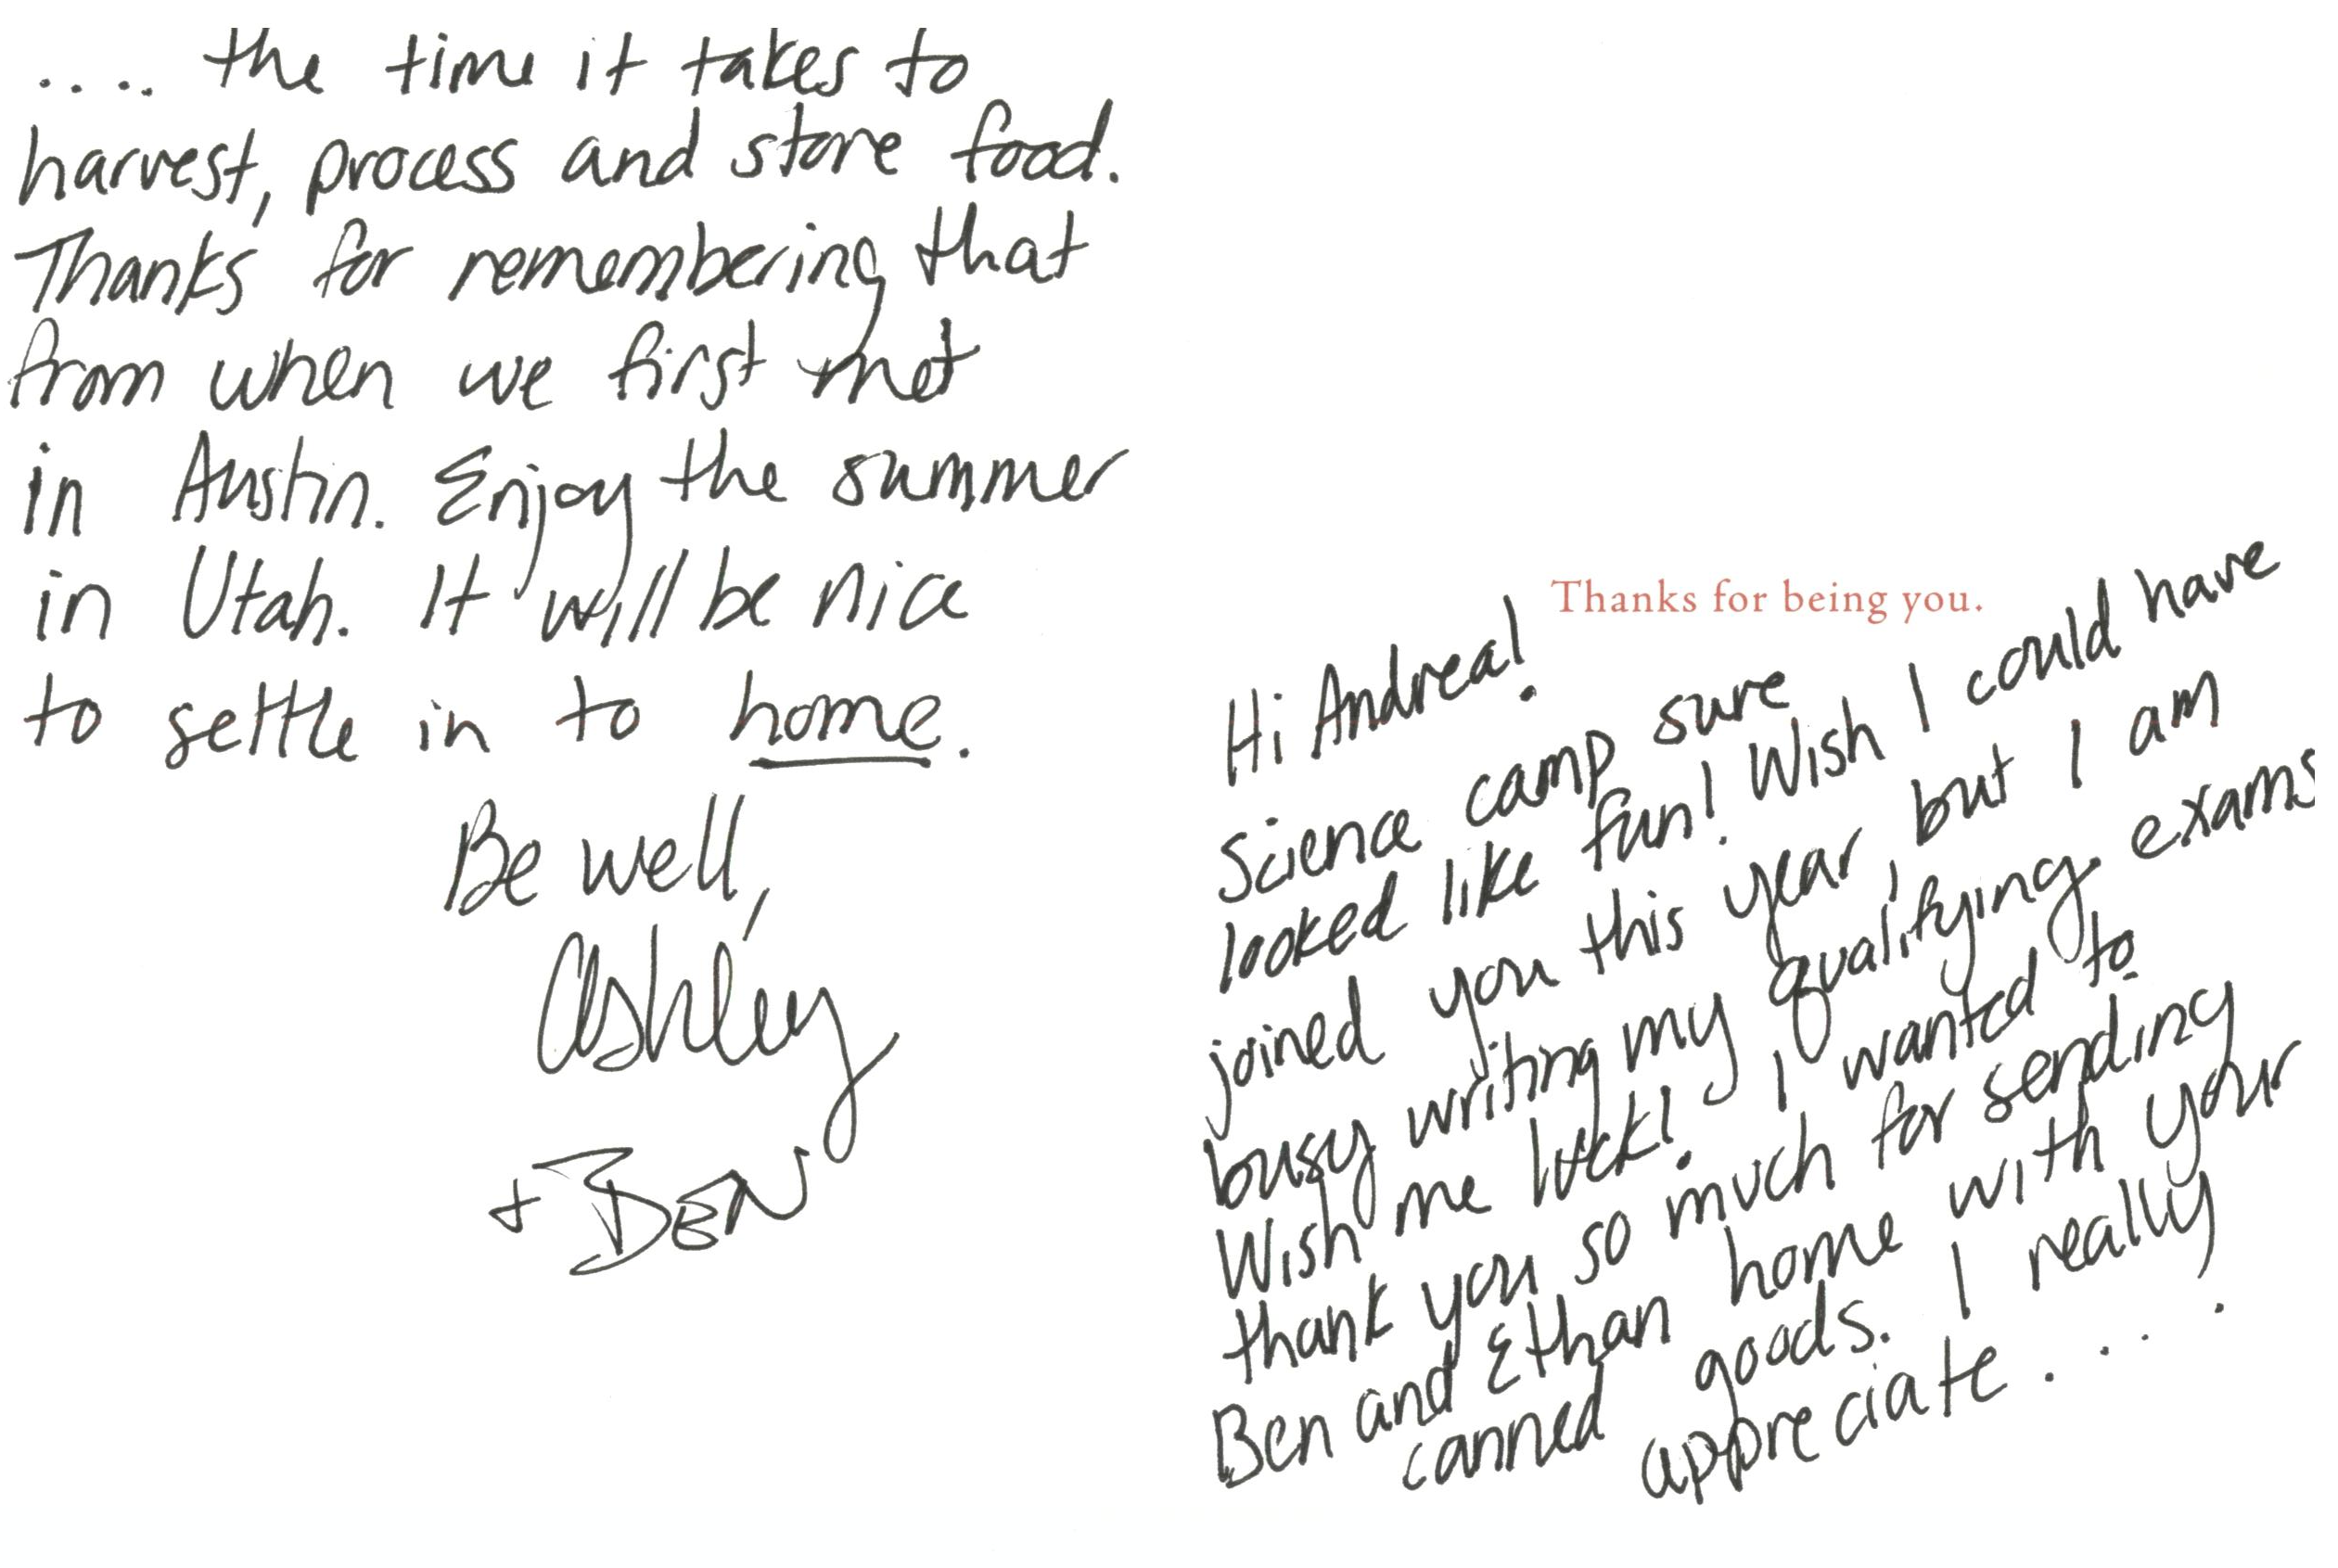 Thanks for being you.
Hi Andrea!
Science camp sure
looked like fun! Wish I could have
joined you this year, but I am
busy writing my qualifying exams.
Wish me luck! I wanted to
thank you so much for sending
Ben and Ethan home with your
canned goods. I really
appreciate . . . .
..... the time it takes to
harvest, process and store food.
Thanks for remembering that
from when we first met
in Austin. Enjoy the summer
in Utah. It will be nice
to settle in to home.
Be well,
Ashley
+ BEN